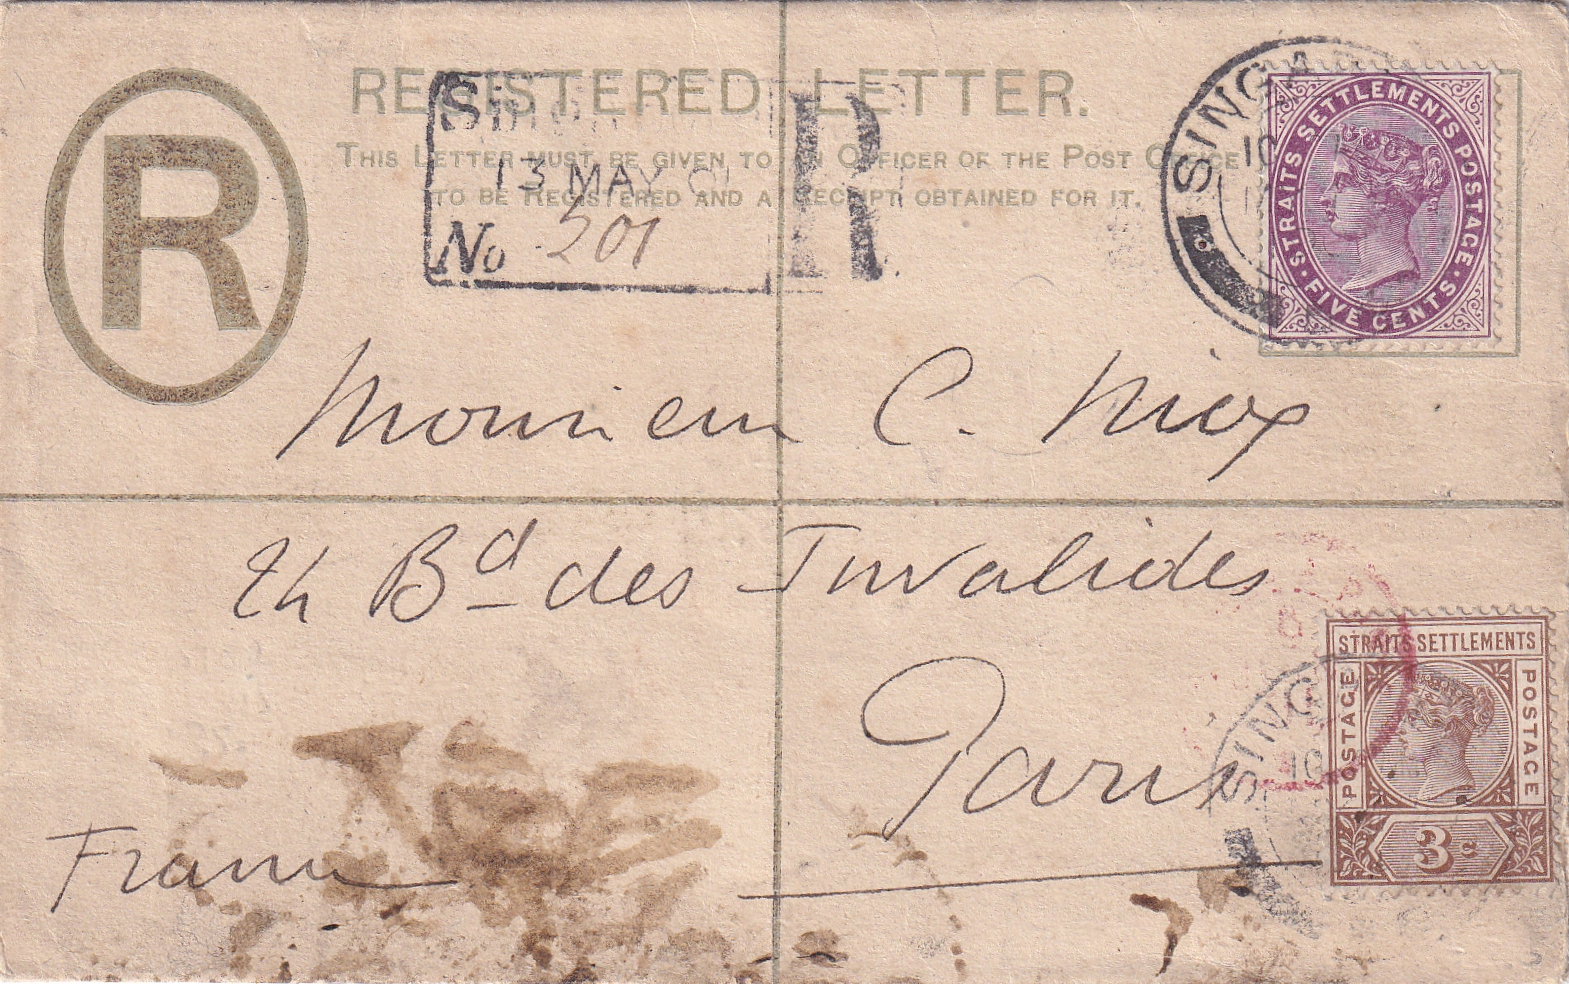 REGISTERED LETTER.
THIS LETTER MUST BE GIVEN TO AN OFFICER OF THE POST OFFICE
TO BE REGISTERED AND A RECEIPT OBTAINED FOR IT.
R
13 MAY 01
No 201
R
SINGAP
10
STRAITS SETTLEMENTS POSTAGE
FIVE CENTS
Monsieur C. Niox
24 Bd des Invalides
Paris
France
SING
10
STRAITS SETTLEMENTS
POSTAGE
POSTAGE
3c